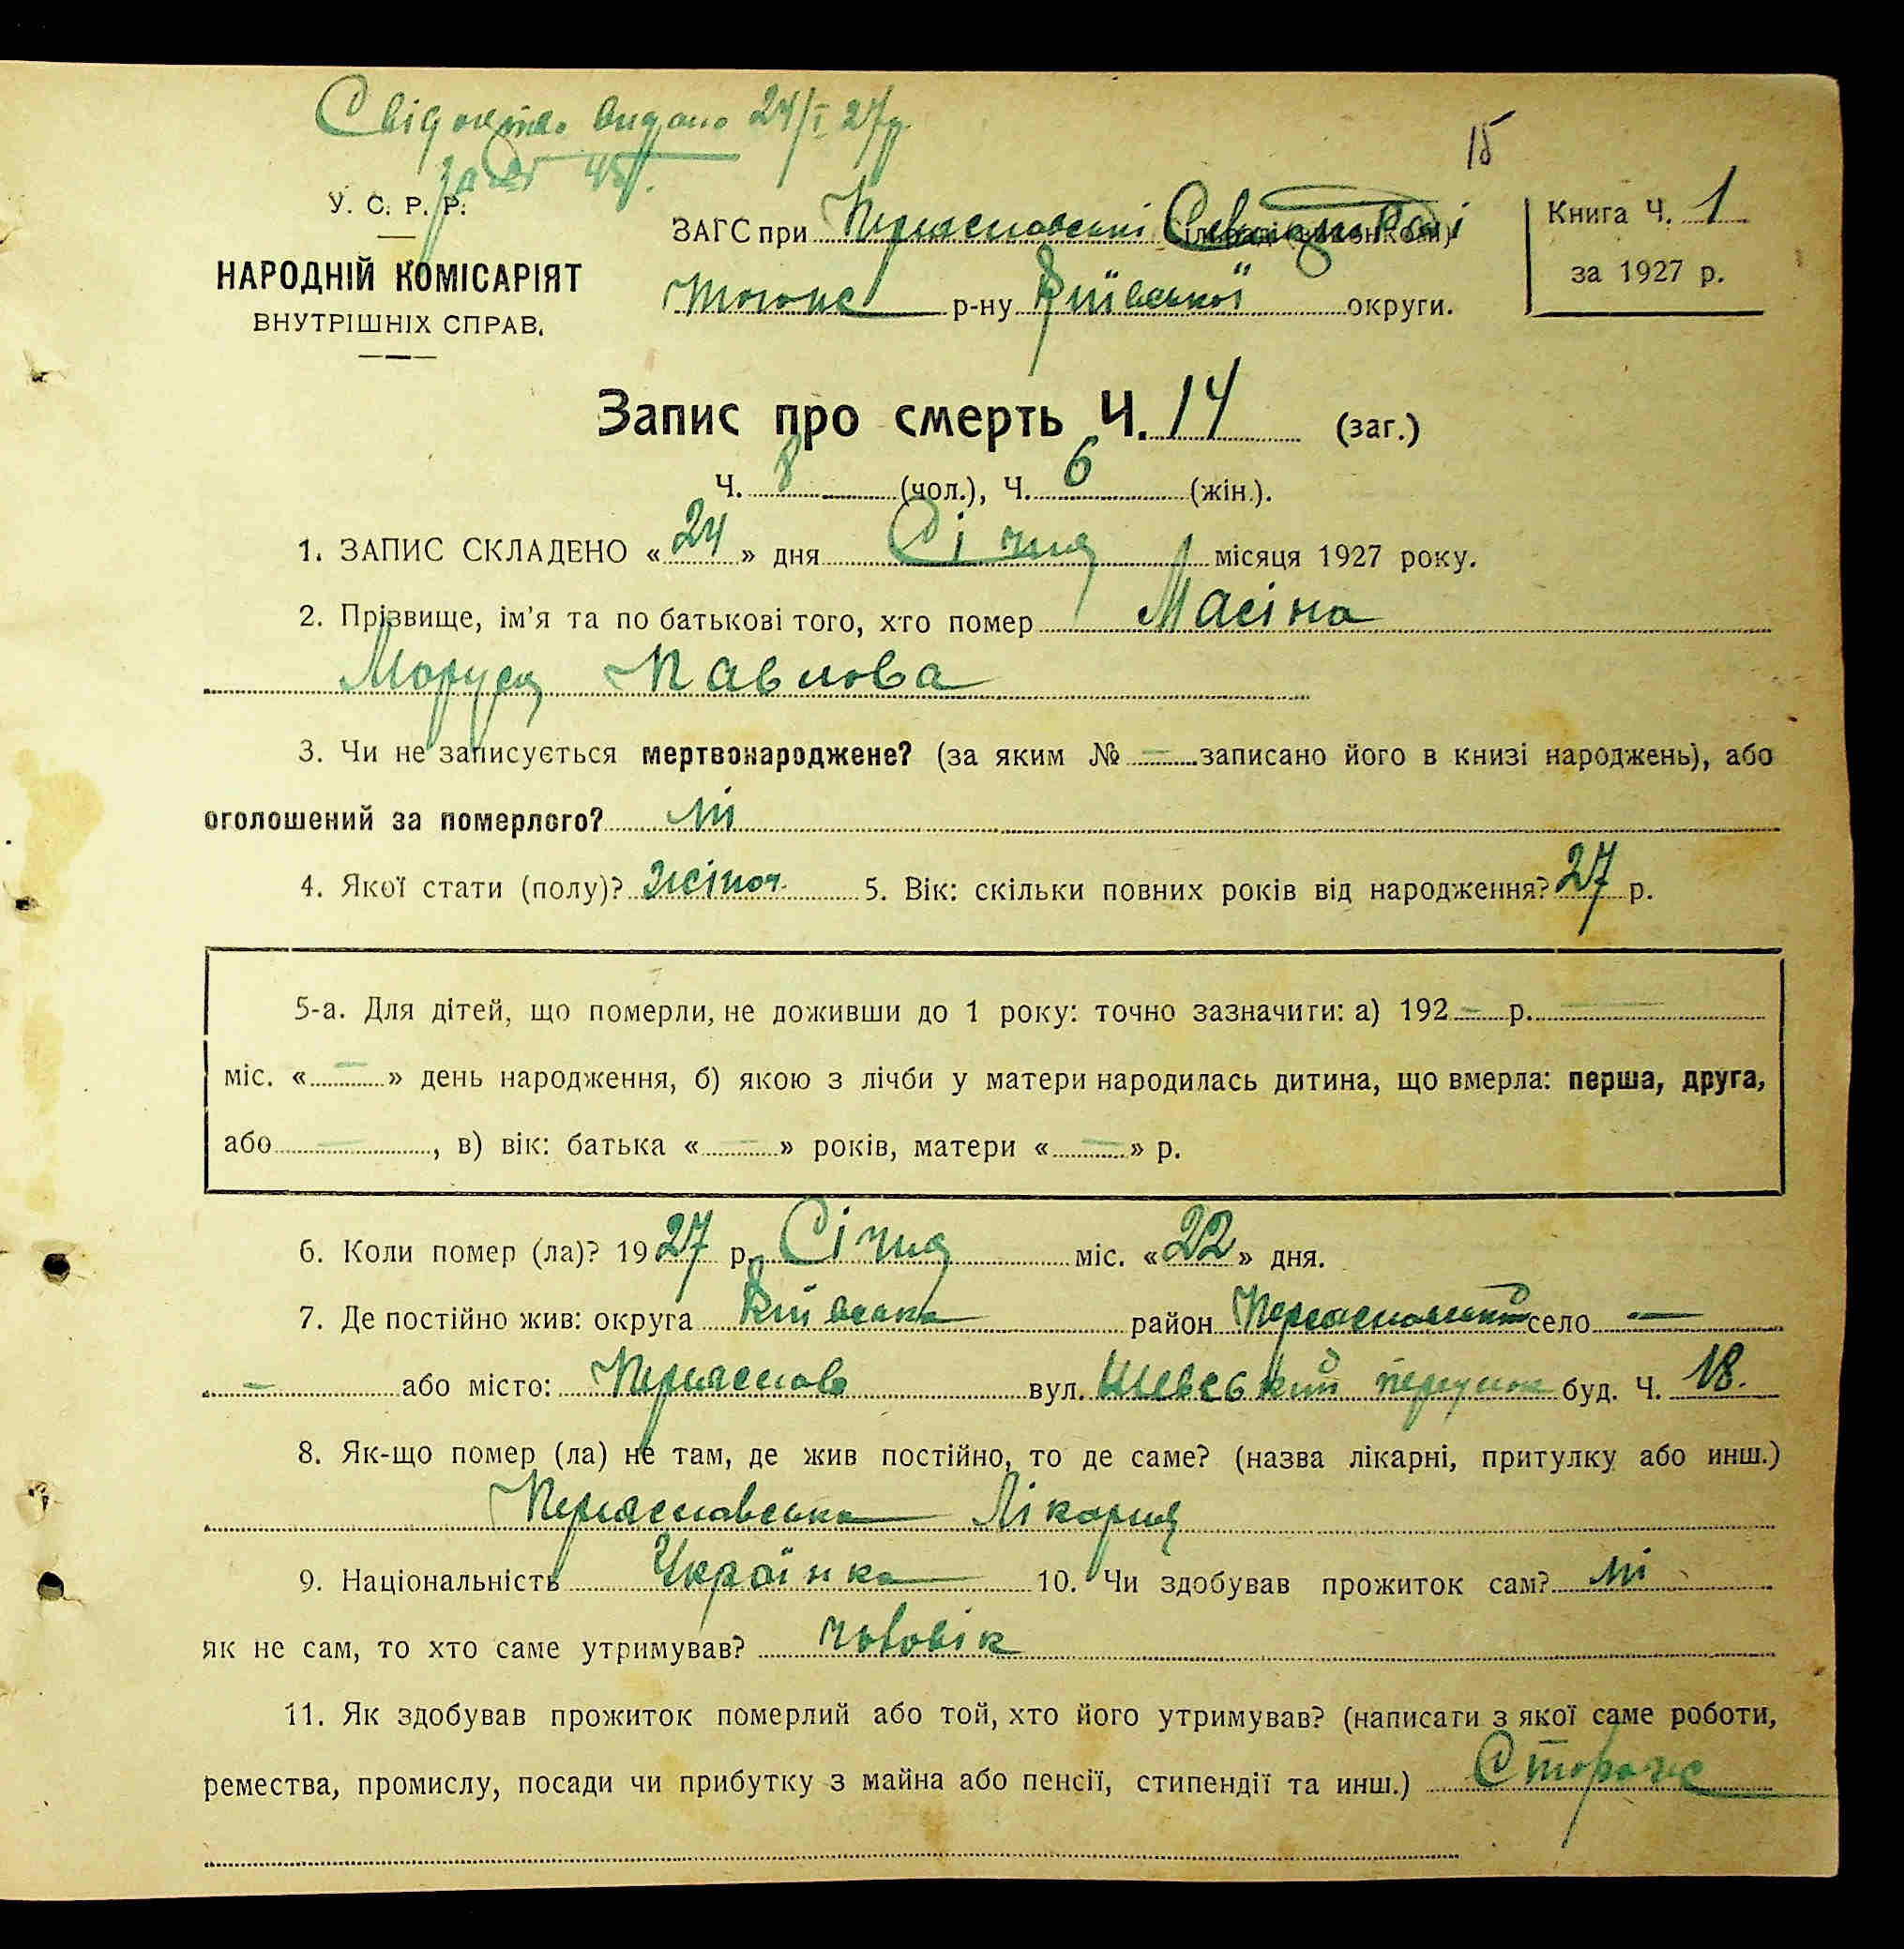 Свідоцтво видано 24/I 27р.
за №
15
У. С. Р. Р.
НАРОДНІЙ КОМІСАРІЯТ
ВНУТРІШНІХ СПРАВ.
ЗАГС при Переяславській
Тогоже р-ну Київської округи.
Книга Ч. 1
за 1927 р.
Запис про смерть Ч. 14 (заг.)
Ч. 8 (чол.), Ч. 6 (жін.).
1. ЗАПИС СКЛАДЕНО « 24 » дня Січня місяця 1927 року.
2. Прізвище, ім'я та по батькові того, хто помер Масіна
Маруся Павлова
3. Чи не записується мертвонароджене? (за яким № — записано його в книзі народжень), або
оголошений за померлого? ні
4. Якої стати (полу)? жіноч. 5. Вік: скільки повних років від народження? 27 р.
5-а. Для дітей, що померли, не доживши до 1 року: точно зазначити: а) 192 — р. —
міс. « — » день народження, б) якою з лічби у матери народилась дитина, що вмерла: перша, друга,
або — , в) вік: батька « — » років, матери « — » р.
6. Коли помер (ла)? 1927 р. Січня міс. « 22 » дня.
7. Де постійно жив: округа Київська район Переяславський село —
— або місто: Переяслов вул. Шевський переулок буд. Ч. 18.
8. Як-що помер (ла) не там, де жив постійно, то де саме? (назва лікарні, притулку або инш.)
Переяславська Лікарня
9. Національність Українка 10. Чи здобував прожиток сам? ні
як не сам, то хто саме утримував? чоловік
11. Як здобував прожиток померлий або той, хто його утримував? (написати з якої саме роботи,
ремества, промислу, посади чи прибутку з майна або пенсії, стипендії та инш.) Сторож